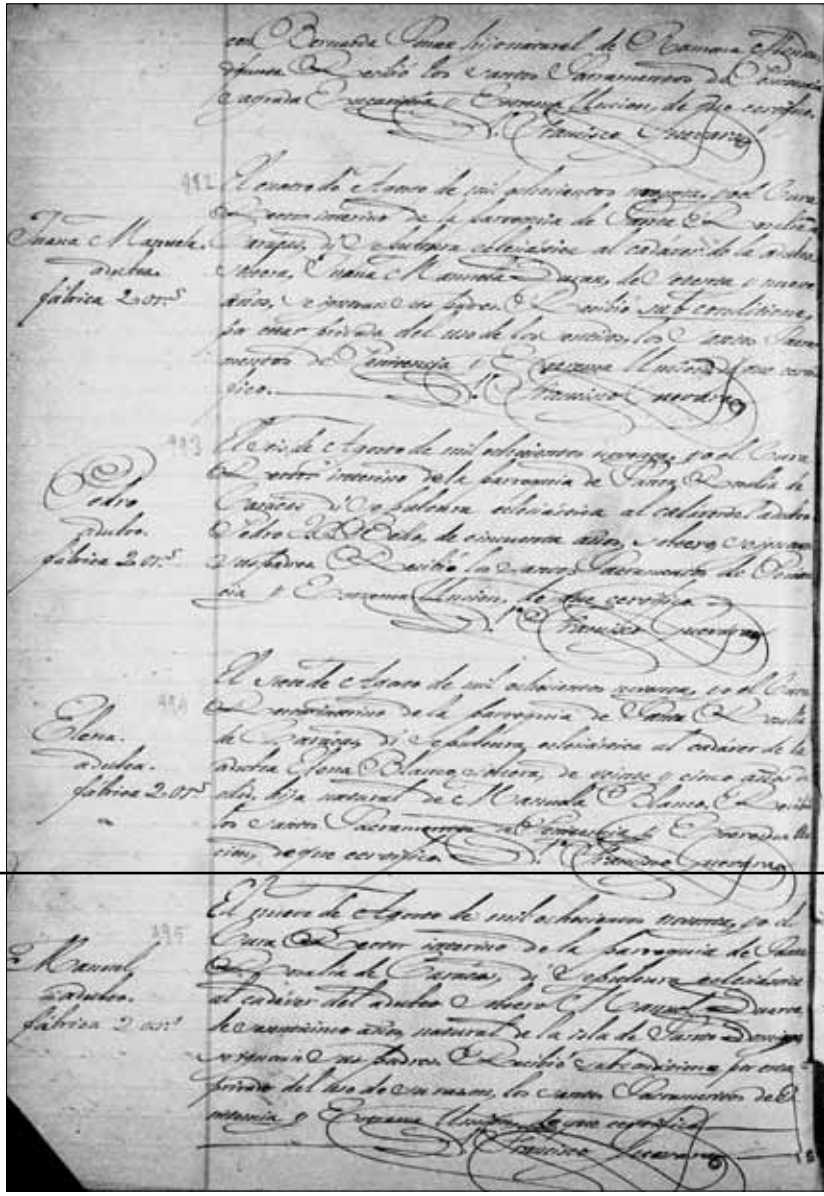 con Bernarda hijo natural de Ramona
difunta. Recibió los santos Sacramentos de Penitencia
Sagrada Eucaristía y Extrema Uncion, de que certifico.
Francisco Guevara
492
El cuatro de Agosto de mil ochocientos noventa, yo el Cura
Rector interino de la parroquia de Santa Rosalia
Carácas, dí Sepultura eclesiástica al cadáver de la adulta
soltera, Juana Manuela Duran, de y nueve
años, se ignoran sus padres. Recibió sub conditione,
por estar privada del uso de los sentidos, los Santos Sacra-
mentos de Penitencia y Extrema Uncion, de que certi-
fico. Francisco Guevara
Juana Manuela.
adulta.
fábrica 2 or.s
493
El seis de Agosto de mil ochocientos noventa, yo el Cura
Rector interino de la parroquia de Santa Rosalia de
Carácas dí Sepultura eclesiástica al cadáver del adulto
Pedro Bello, de cincuenta años, soltero, se ignoran
sus padres. Recibió los Santos Sacramentos de Peniten-
cia y Extrema Uncion, de que certifico.
Francisco Guevara
Pedro
adulto.
fábrica 2 or.s
494
El siete de Agosto de mil ochocientos noventa, yo el Cura
Rector interino de la parroquia de Santa Rosalia
de Carácas, dí Sepultura eclesiástica al cadáver de la
adulta Elena Blanco, soltera, de veinte y cinco años de
edad, hija natural de Manuela Blanco. Recibió
los Santos Sacramentos de Penitencia y Extrema Un-
cion, de que certifico. Francisco Guevara
Elena.
adulta.
fábrica 2 or.s
495
El nueve de Agosto de mil ochocientos noventa, yo el
Cura Rector interino de la parroquia de Santa
Rosalia de Carácas, dí Sepultura eclesiástica
al cadáver del adulto soltero Manuel Duarte
de años, natural de la isla de Santo Domingo
se ignoran sus padres. Recibió sub conditione, por estar
privado del uso de su razon, los santos Sacramentos de Pe-
nitencia y Extrema Uncion, de que certifico
Francisco Guevara
Manuel,
adulto.
fábrica 2 or.s